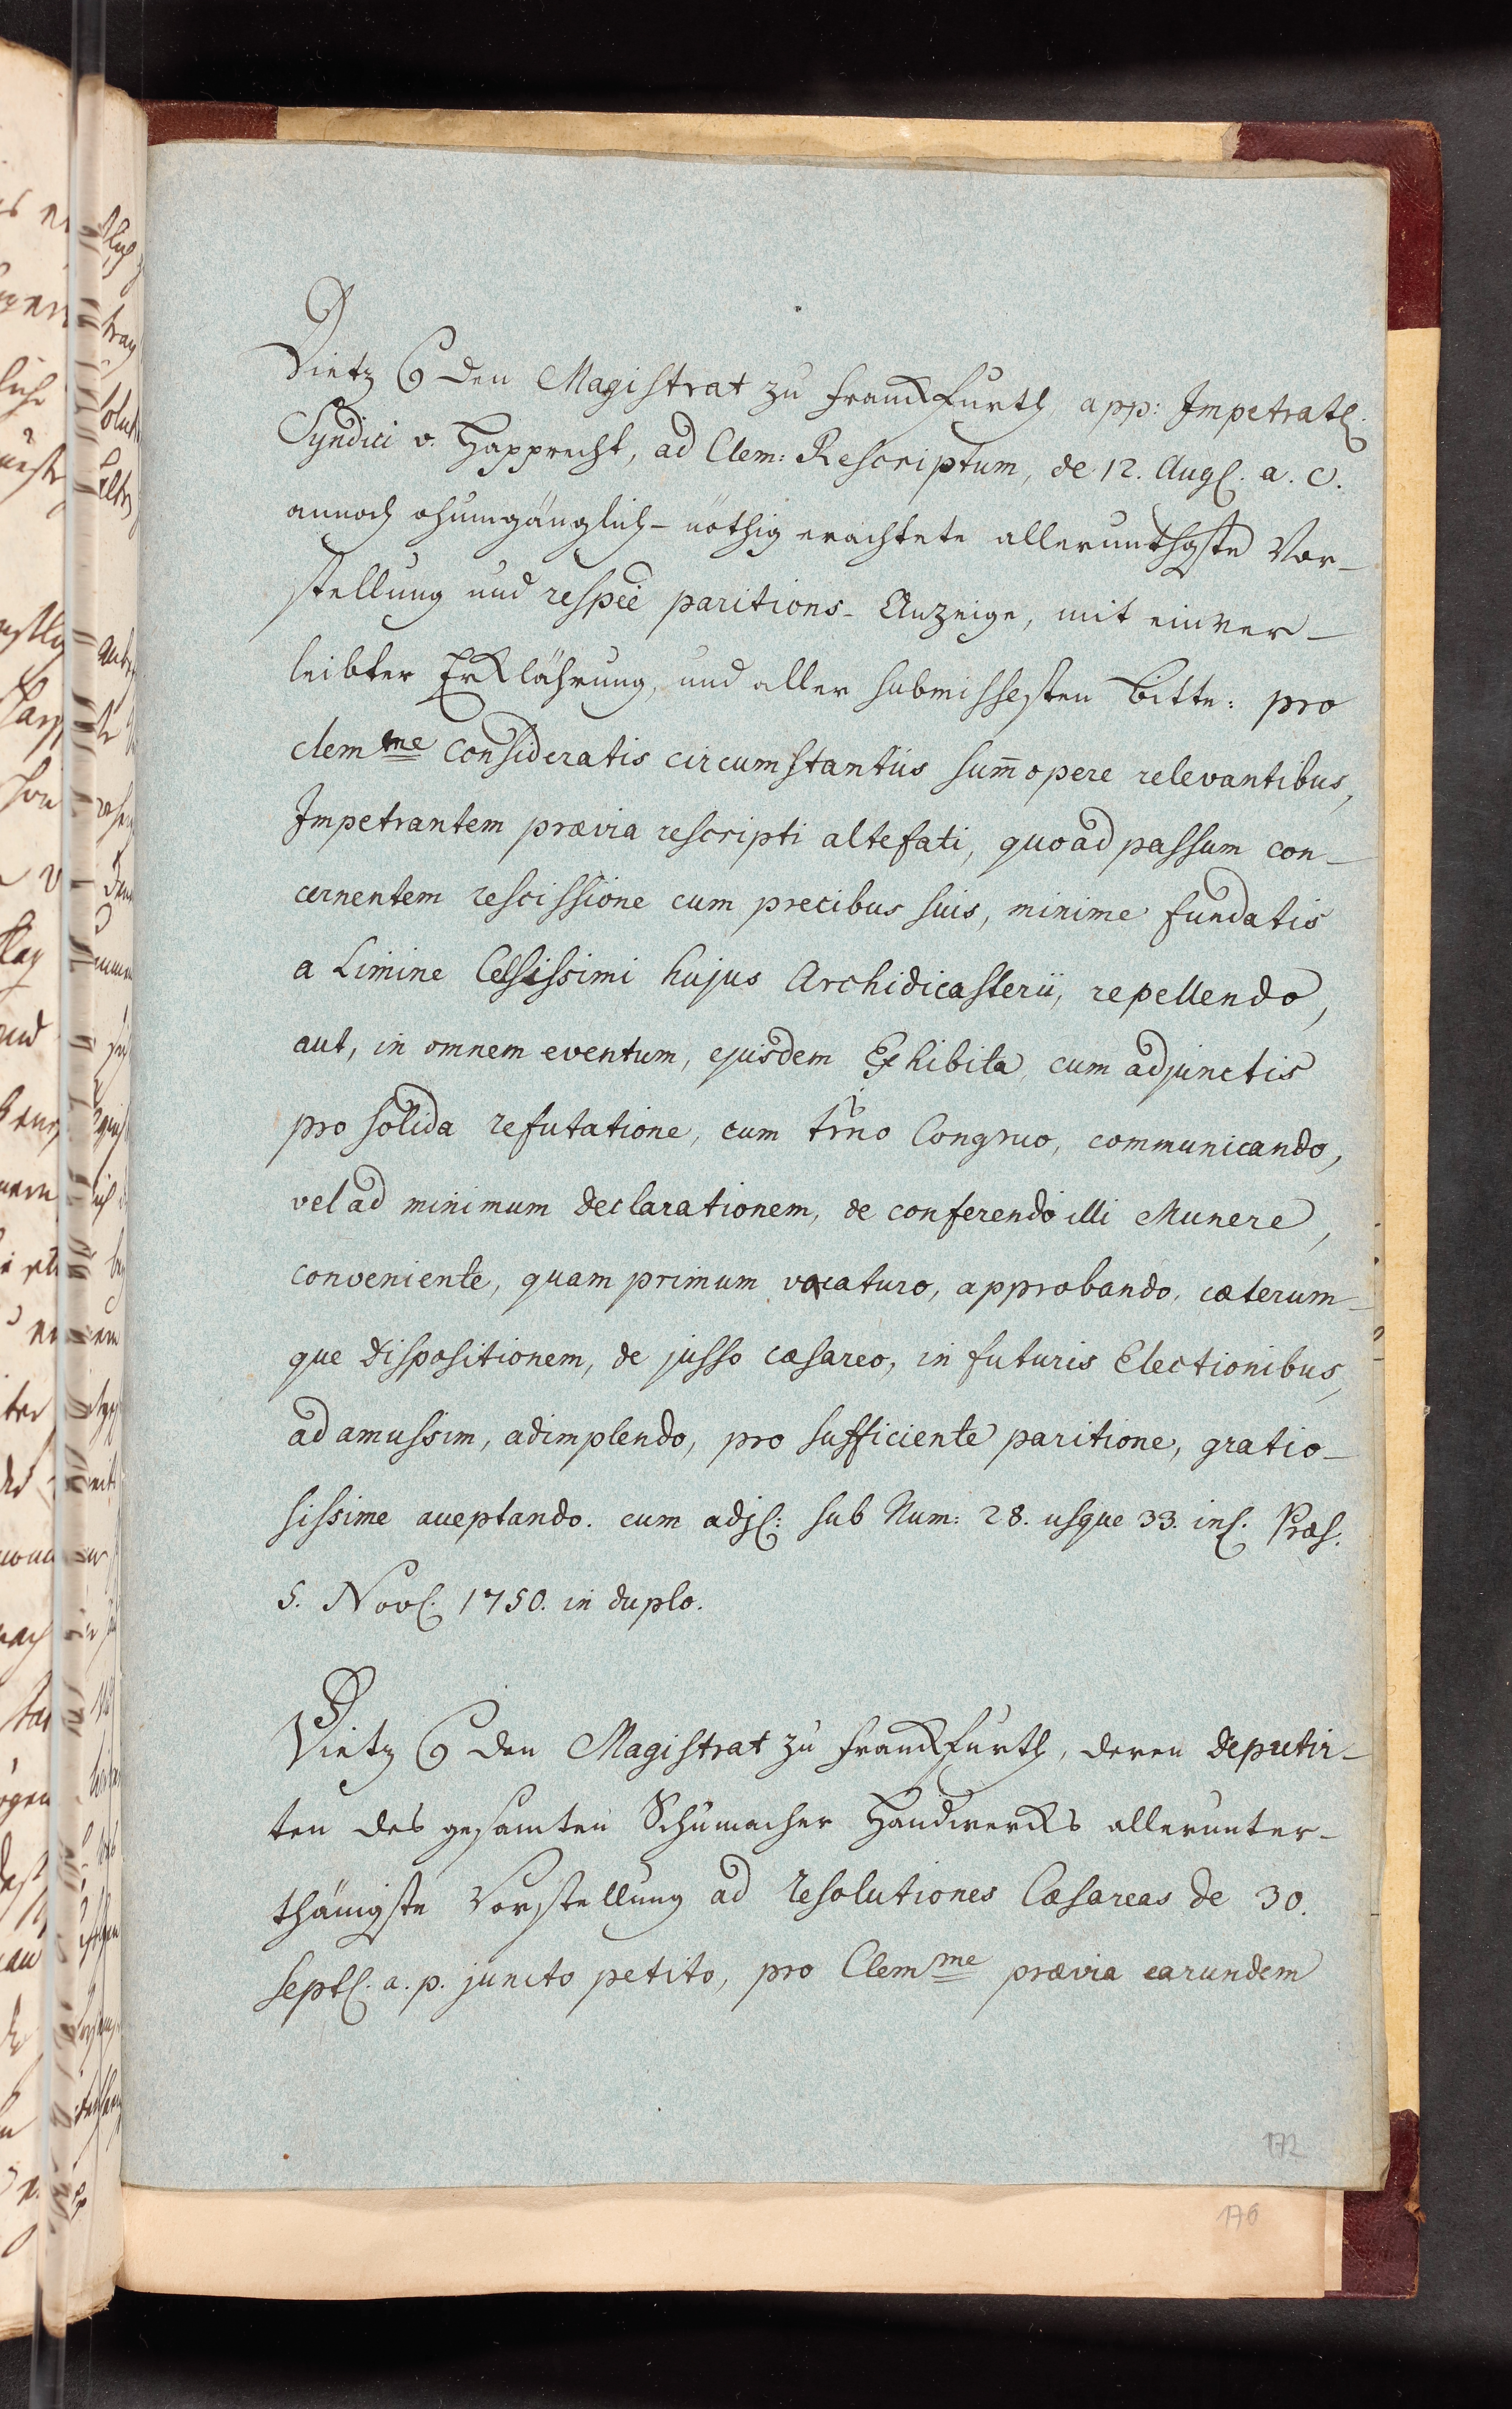 Dietz C∕ den Magistrat zu Franckfurth app: Impetrat.
Syndici v. Happrecht, ad Clem: Rescriptum, de 12. Aug. a. c.
annoch ohnumgänglich- nöthig erachtete allerunthgste Vor-
stellung und respée paritions- Anzeige, mit einver-
leibter Erklährung, und aller submissesten bitte: pro
clemme consideratis circumstantiis sum̄opere relevantibus,
Impetrantem prævia rescripti altefati, quoad passum con-
cernentem rescissione cum precibus suis, minime fundatis
a Limine Celsissimi hujus Archidicasterii, repellendo,
aut, in omnem eventum, ejusdem Exhibita cum adjunctis
pro solida refutatione, cum trno Congruo, communicando,
vel ad minimum declarationem, de conferendo illi Munere,
conveniente, quam primum vacaturo, approbando, cæterum-
que dispositionem, de jusso cæsareo, in futuris Electionibus,
ad amussim, adimplendo, pro sufficiente paritione, gratio-
sissime aceptando. cum adj: sub Num: 28. usque 33. incl. Præs.
5. Nov. 1750. in duplo.
Dietz C∕ den Magistrat zu Franckfurth, deren deputir-
ten des gesamten Schumacher Handwercks allerunter-
thänigste Vorstellung ad resolutiones Cæsareas de 30.
Sept. a. p. juncto petito, pro Clemme prævia earundem
172
176